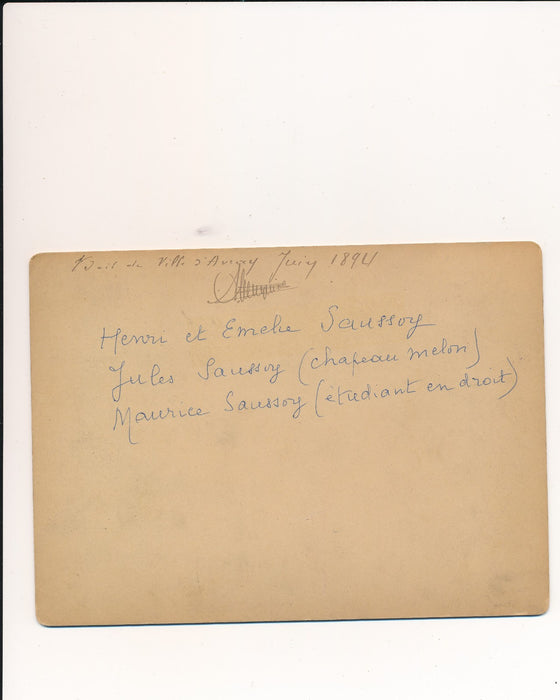 de Ville d'Avray Juin 1894
Henri et Emelie Saussoy
Jules Saussoy (chapeau melon)
Maurice Saussoy (étudiant en droit)